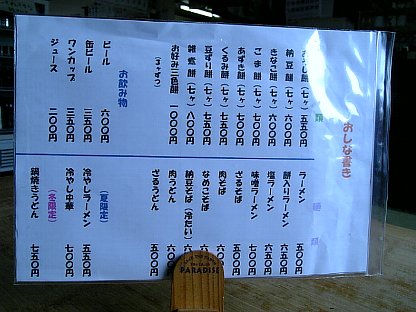 おしな書き
おろし餅(七ヶ) 五五〇円
納豆餅(七ヶ) 六〇〇円
きなこ餅(七ヶ) 六〇〇円
ごま餅(七ヶ) 七〇〇円
あずき餅(七ヶ) 七〇〇円
くるみ餅(七ヶ) 七〇〇円
豆ずり餅(七ヶ) 七五〇円
雑煮餅(七ヶ) 八〇〇円
お好み三色餅 一〇〇〇円
お飲み物
ビール 六〇〇円
缶ビール 三五〇円
ワンカップ 三五〇円
ジュース 二〇〇円
麺類
ラーメン 五〇〇円
餅入りラーメン 六五〇円
塩ラーメン
味噌ラーメン
ざるそば
肉そば
なめこそば
納豆そば(冷たい)
肉うどん
ざるうどん 五〇〇円
(夏限定)
冷やしラーメン 五五〇円
冷やし中華 七〇〇円
(冬限定)
鍋焼きうどん 七五〇円
PARADISE